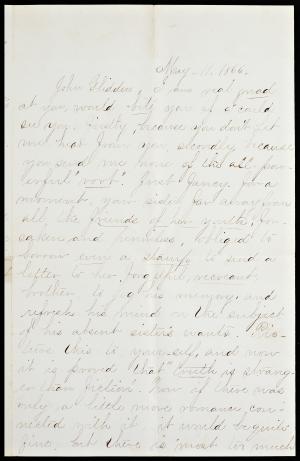 May - 11. 1866.
John Glidden, I am real mad
at you, would bite you if I could
see you. Firstly, because you don't let
me hear from you, secondly because
you send me none of the all pow-
erful "root." Just fancy, for a
moment, your sister far away from
all the friends of her youth, for-
saken and penniless, obliged to
borrow even a stamp to send a
letter to her forgetful, recreant
brother to jog his memory, and
refresh his mind on the subject
of his absent sister's wants. Pic-
ture this to yourself, and now
it is proved that "truth is strang-
er than fiction". Now if there was
only a little more romance con-
nected with it, it would be quite
fine, but there is most too much